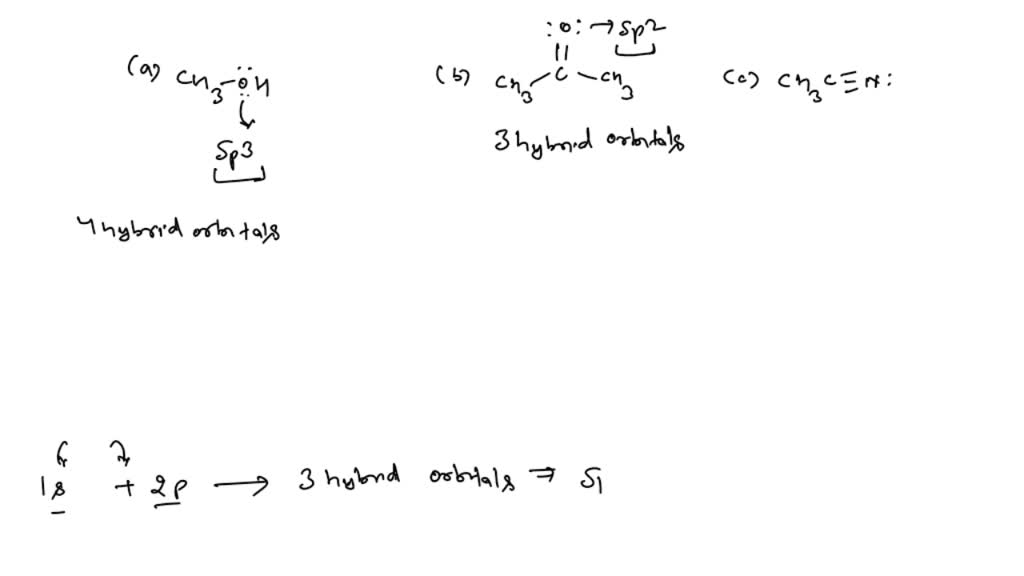 (a) CH3-ÖH
Sp3
4 hybrid orbitals
(b) :O: → Sp2
||
CH3 - C - CH3
3 hybrid orbitals
(c) CH3C≡N:
1s + 2p → 3 hybrid orbitals ⇒ S